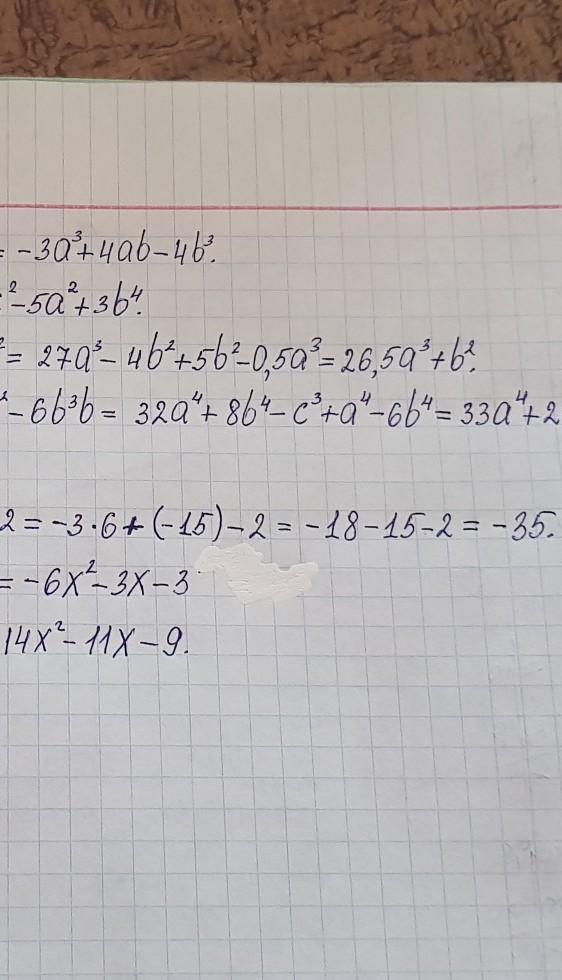 = -3a³+4ab-4b³.
²-5a²+3b⁴.
²= 27a³- 4b²+5b²-0,5a³= 26,5a³+b².
- 6b³b = 32a⁴+ 8b⁴-c³+a⁴-6b⁴= 33a⁴+2
2 = -3·6+(-15)-2 = -18-15-2 = -35.
= -6x²-3x-3
14x²-11x-9.